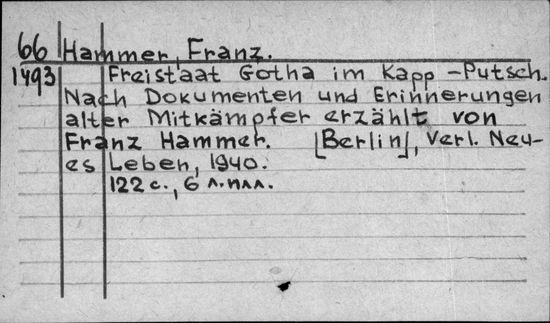 66 Hammer, Franz.
1493 Freistaat Gotha im Kapp-Putsch.
Nach Dokumenten und Erinnerungen
alter Mitkämpfer erzählt von
Franz Hammer. [Berlin], Verl. Neu-
es Leben, 1940.
122 с., 6 л. илл.